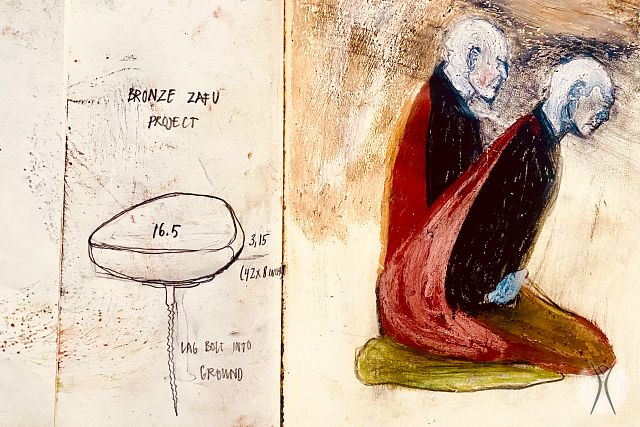 BRONZE ZAFU
PROJECT
16.5
3,15
(42x8
LAG BOLT INTO
GROUND